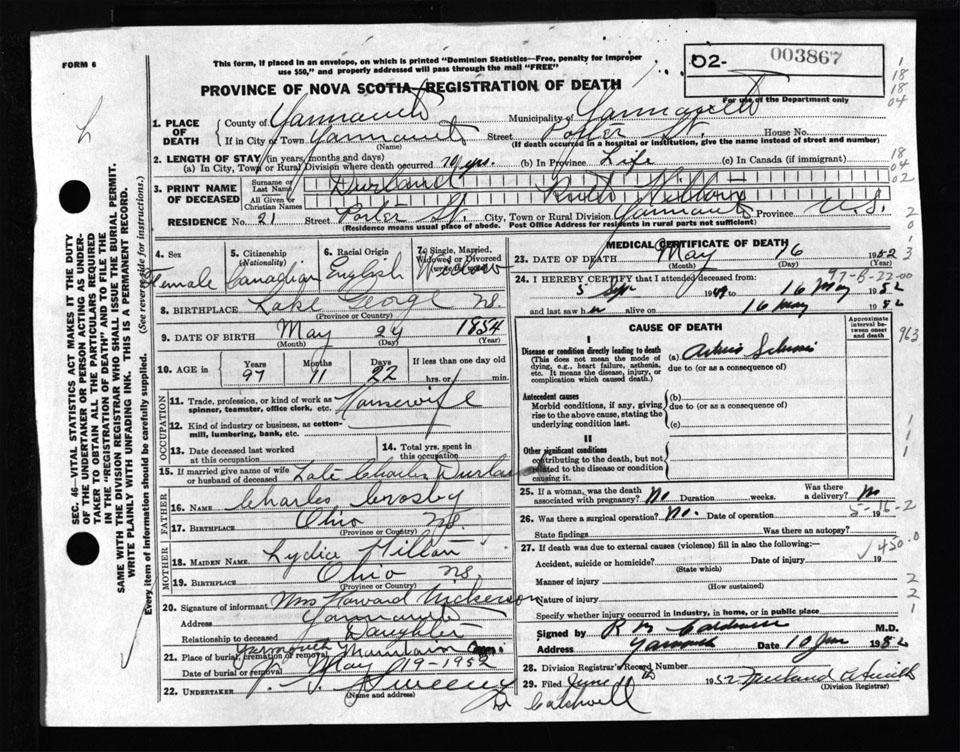 FORM 6
This form, if placed in an envelope, on which is printed "Dominion Statistics—Free, penalty for improper
use $50," and properly addressed will pass through the mail "FREE"
02- 003867
For use of the Department only
PROVINCE OF NOVA SCOTIA—REGISTRATION OF DEATH
1. PLACE OF DEATH
County of Yarmouth Municipality of Yarmouth
If in City or Town Yarmouth Street Porter St. House No.
(Name) (If death occurred in a hospital or institution, give the name instead of street and number)
2. LENGTH OF STAY (in years, months and days)
(a) In City, Town or Rural Division where death occurred 70 yrs. (b) In Province Life (c) In Canada (if immigrant)
3. PRINT NAME OF DECEASED
Surname or Last Name Durland
All Given or Christian Names Ruth
RESIDENCE No. 21 Street Porter St. City, Town or Rural Division Yarmouth Province N.S.
(Residence means usual place of abode. Post Office Address for residents in rural parts not sufficient)
4. Sex Female
5. Citizenship (Nationality) Canadian
6. Racial Origin English
7. Single, Married, Widowed or Divorced Widow
8. BIRTHPLACE Lake George N.S.
(Province or Country)
9. DATE OF BIRTH May 24 1854
(Month) (Day) (Year)
10. AGE in Years 97 Months 11 Days 22 If less than one day old hrs. or min.
OCCUPATION
11. Trade, profession, or kind of work as spinner, teamster, office clerk, etc. Housewife
12. Kind of industry or business, as cotton-mill, lumbering, bank, etc.
13. Date deceased last worked at this occupation
14. Total yrs. spent in this occupation
15. If married give name of wife or husband of deceased Late Charles Durland
FATHER
16. NAME Charles Crosby
17. BIRTHPLACE Ohio N.S.
(Province or Country)
MOTHER
18. MAIDEN NAME Lydia
19. BIRTHPLACE Ohio N.S.
(Province or Country)
20. Signature of informant Mrs Howard Nickerson
Address Yarmouth
Relationship to deceased Daughter
21. Place of burial, cremation or removal Yarmouth Mountain Cem.
Date of burial or removal May 19-1952
22. UNDERTAKER Sweeny
(Name and address)
MEDICAL CERTIFICATE OF DEATH
23. DATE OF DEATH May 16 1952
(Month) (Day) (Year)
97-B-22-00
24. I HEREBY CERTIFY that I attended deceased from:
5 Sept 1949 to 16 May 1952
and last saw her alive on 16 May 1952
CAUSE OF DEATH
Approximate interval between onset and death
I
Disease or condition directly leading to death
(This does not mean the mode of dying, e.g., heart failure, asthenia, etc. It means the disease, injury, or complication which caused death.)
(a)
due to (or as a consequence of)
Antecedent causes
Morbid conditions, if any, giving rise to the above cause, stating the underlying condition last.
(b)
due to (or as a consequence of)
(c)
II
Other significant conditions
contributing to the death, but not related to the disease or condition causing it.
25. If a woman, was the death associated with pregnancy? No Duration weeks. Was there a delivery? No
26. Was there a surgical operation? No. Date of operation 19
State findings Was there an autopsy?
27. If death was due to external causes (violence) fill in also the following:—
Accident, suicide or homicide? Date of injury 19
(State which)
Manner of injury
(How sustained)
Nature of injury
Specify whether injury occurred in industry, in home, or in public place
Signed by M.D.
Address Yarmouth Date 10 June 1952
28. Division Registrar's Record Number
29. Filed June 1952
(Division Registrar)
D. Caldwell
SEC. 46—VITAL STATISTICS ACT MAKES IT THE DUTY
OF THE UNDERTAKER OR PERSON ACTING AS UNDER-
TAKER TO OBTAIN ALL THE PARTICULARS REQUIRED
IN THE "REGISTRATION OF DEATH" AND TO FILE THE
SAME WITH THE DIVISION REGISTRAR WHO SHALL ISSUE THE BURIAL PERMIT.
WRITE PLAINLY WITH UNFADING INK. THIS IS A PERMANENT RECORD.
Every item of information should be carefully supplied. (See reverse side for instructions.)